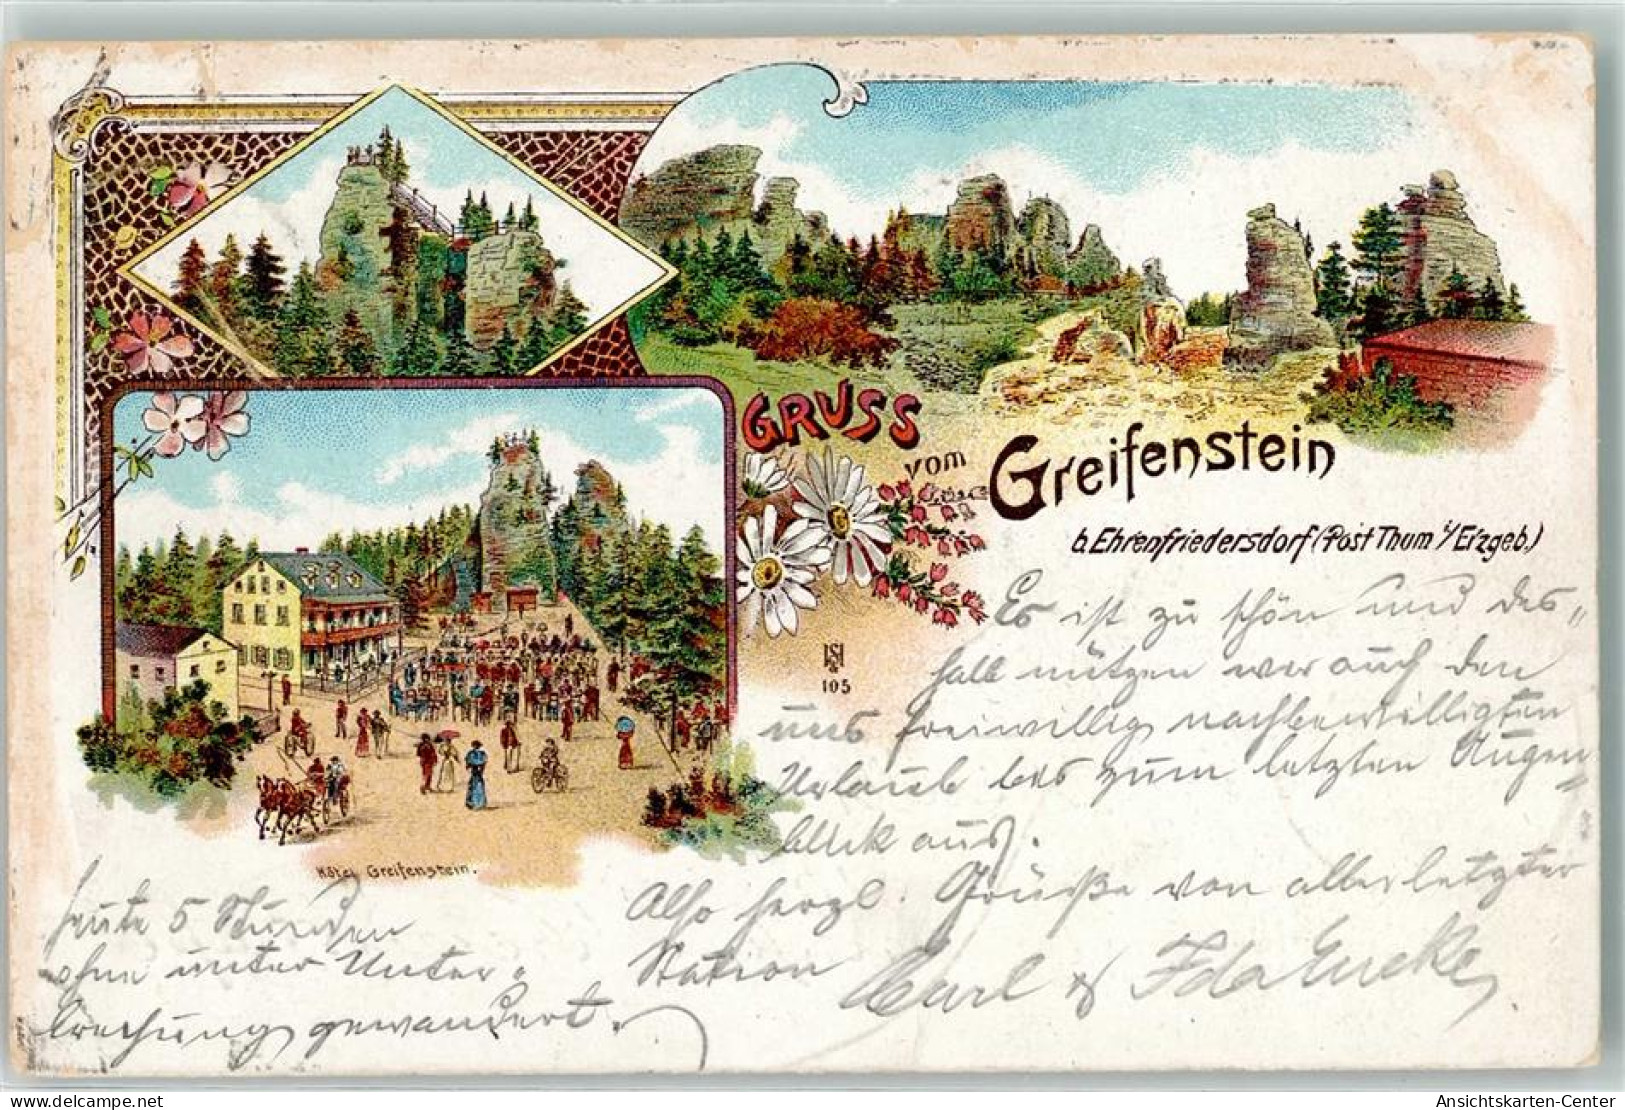 GRUSS
vom
Greifenstein
b. Ehrenfriedersdorf (Post Thum i/Erzgeb.)
HS
105
Hôtel Greifenstein.
Es ist zu schön und des„
halb nützen wir auch den
uns freiwillig nachbewilligten
Urlaub bis zum letzten Augen„
blick aus.
Also herzl. Grüße von allerletzter
Station
Carl & Ida Encke
heute 5 Stunden
ohne unter Unter„
brechung gewandert.
Ansichtskarten-Center
AnsichtsKarten-Center